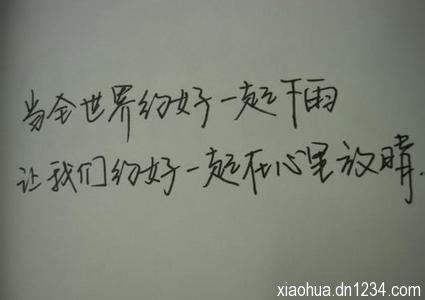 当全世界约好一起下雨
让我们约好一起在心里放晴.
xiaohua.dn1234.com